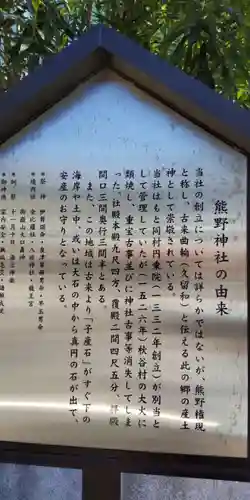 熊野神社の由来
当社の創立については詳らかではないが、熊野権現
と称し、古来曲輪（久留和）と伝える此の郷の産土
神として崇敬されている。
当社はもと同村円乗院（一三三二年創立）が別当と
して管理していたが（一五二六年）秋谷村の大火に
類焼し、重宝古事並びに神社古事等消失してしま
った。社殿本殿九尺四方、覆殿二間四尺五分、拝殿
間口三間奥行三間半とある。
また、この地域は古来より「子産石」がすぐ下の
海岸や土中、或いは大石の中から真円の石が出て、
安産のお守りとなっている。
祭神
境内社
例祭
御神徳